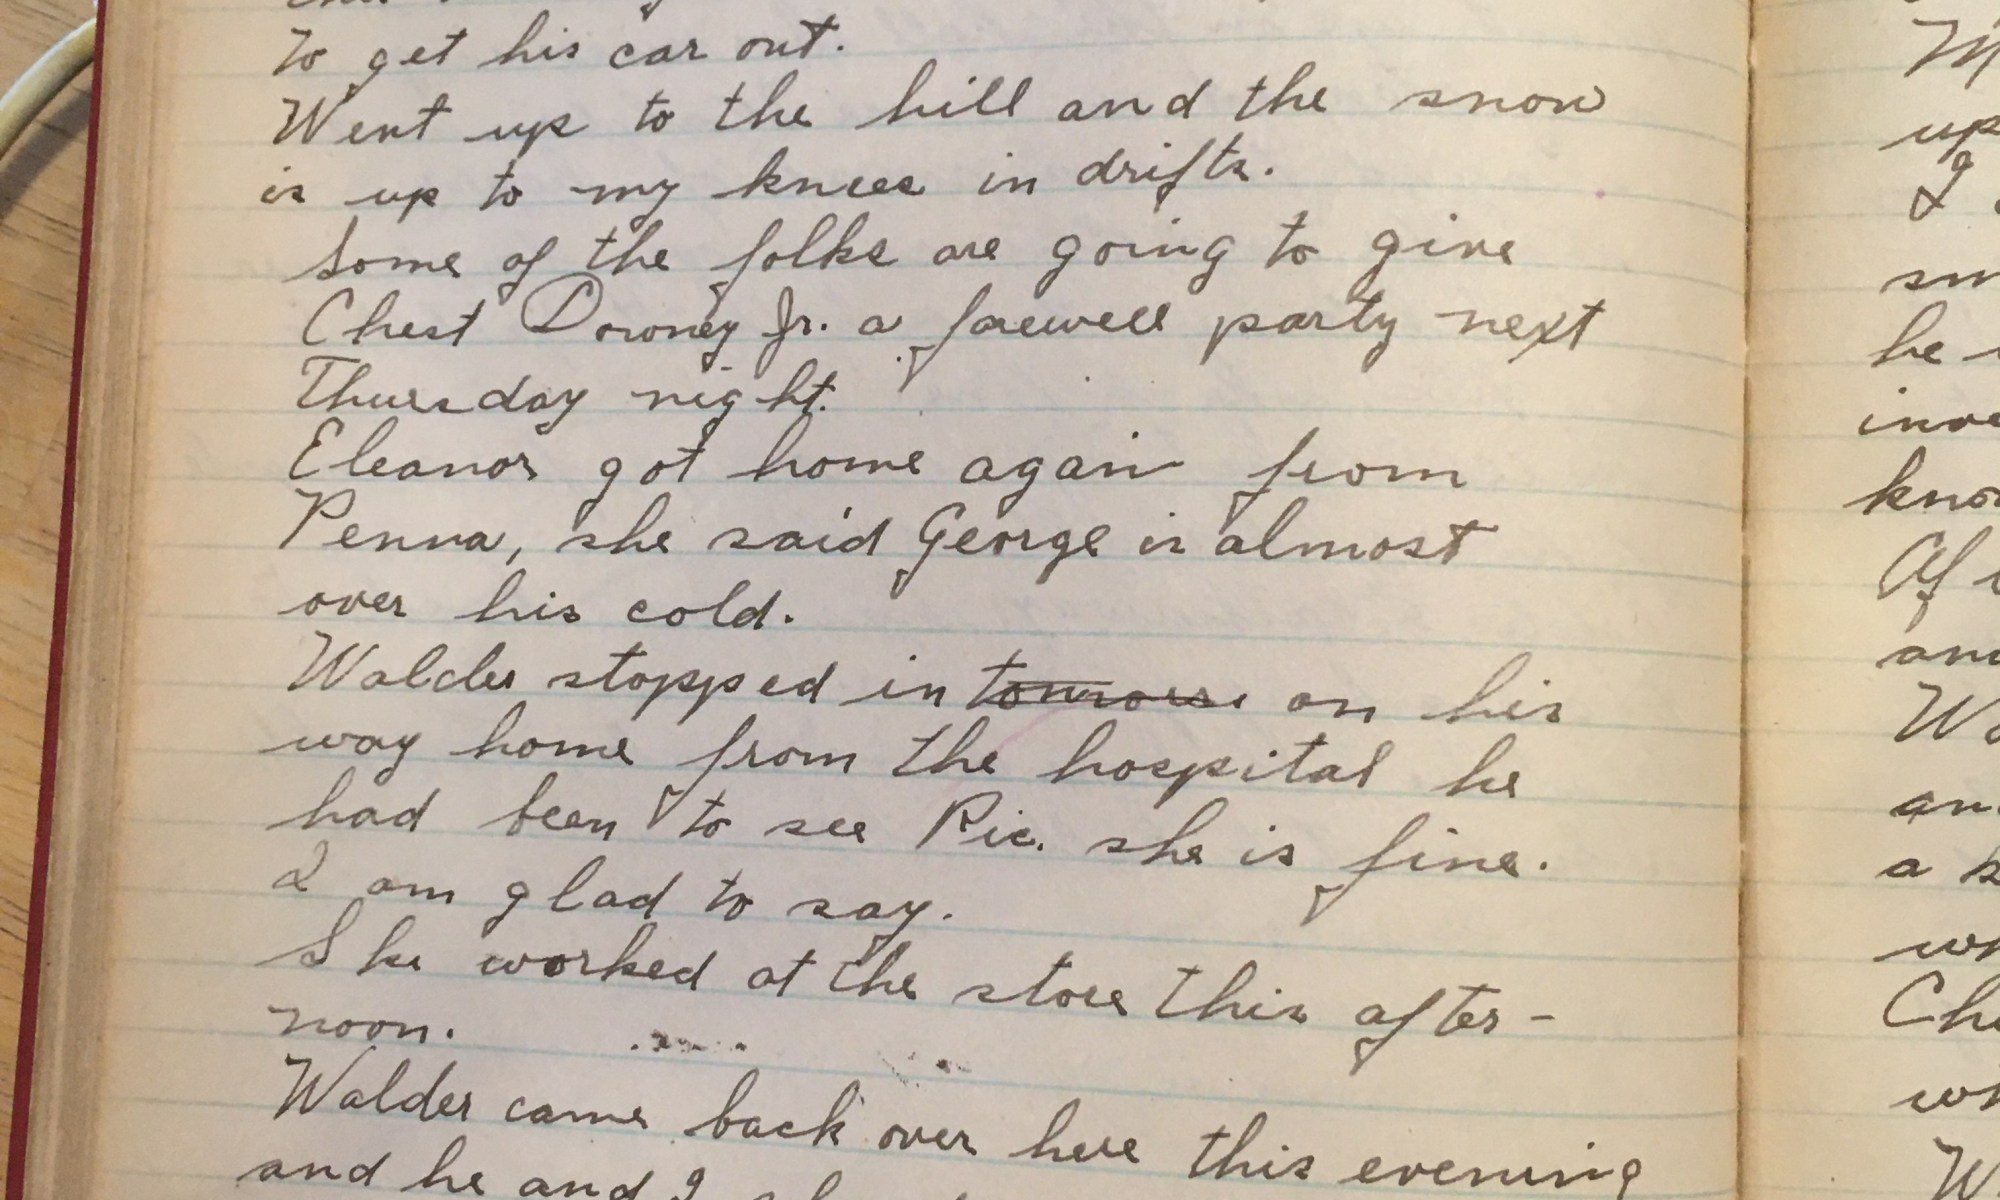 to get his car out.
Went up to the hill and the snow
is up to my knees in drifts.
Some of the folks are going to give
Chest Downey Jr. a farewell party next
Thursday night.
Eleanor got home again from
Penna, she said George is almost
over his cold.
Walder stopped in tomorow on his
way home from the hospital he
had been to see Ric. she is fine.
I am glad to say.
She worked at the store this after-
noon.
Walder came back over here this evening
and he and I
up
I
he
Of
and
W
a
Ch
wh
W